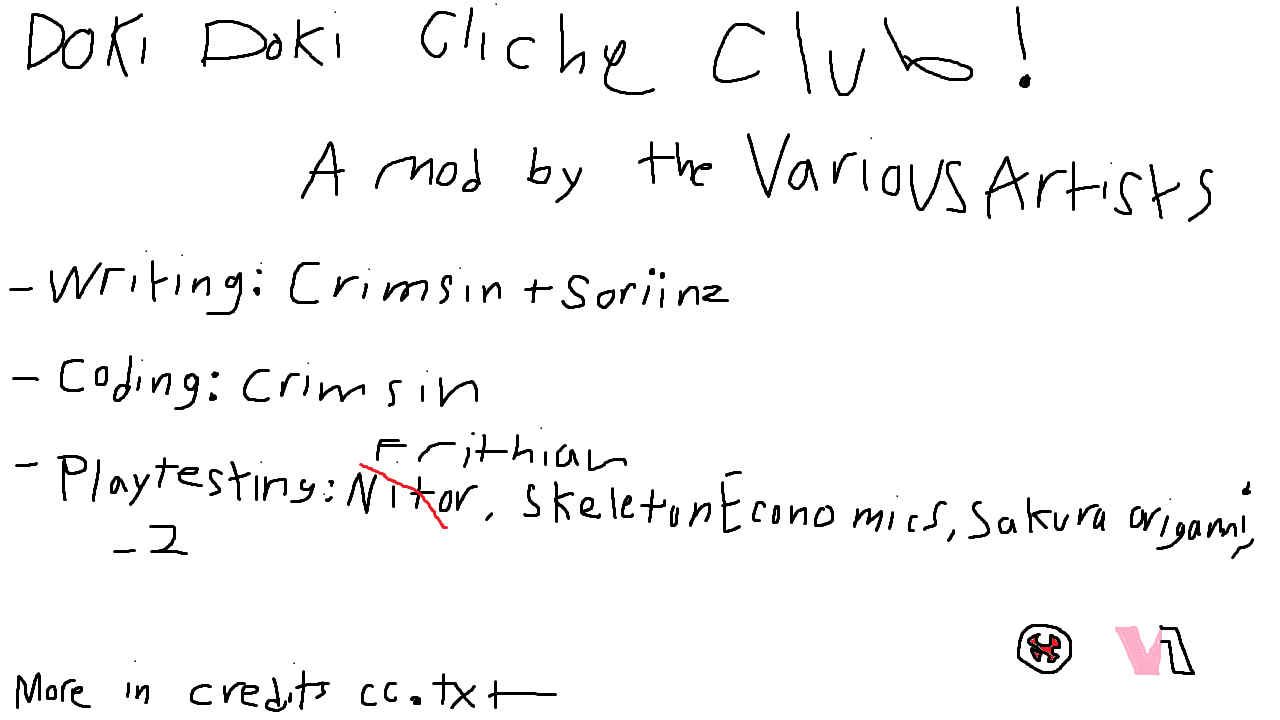 Doki Doki Cliche Club!
A mod by the Various Artists
- Writing: Crimsin + Soriinz
- Coding: Crimsin
Frithian
- Playtesting: Nitor, SkeletonEconomics, Sakura origami,
- Z
V1
More in credits cc.txt